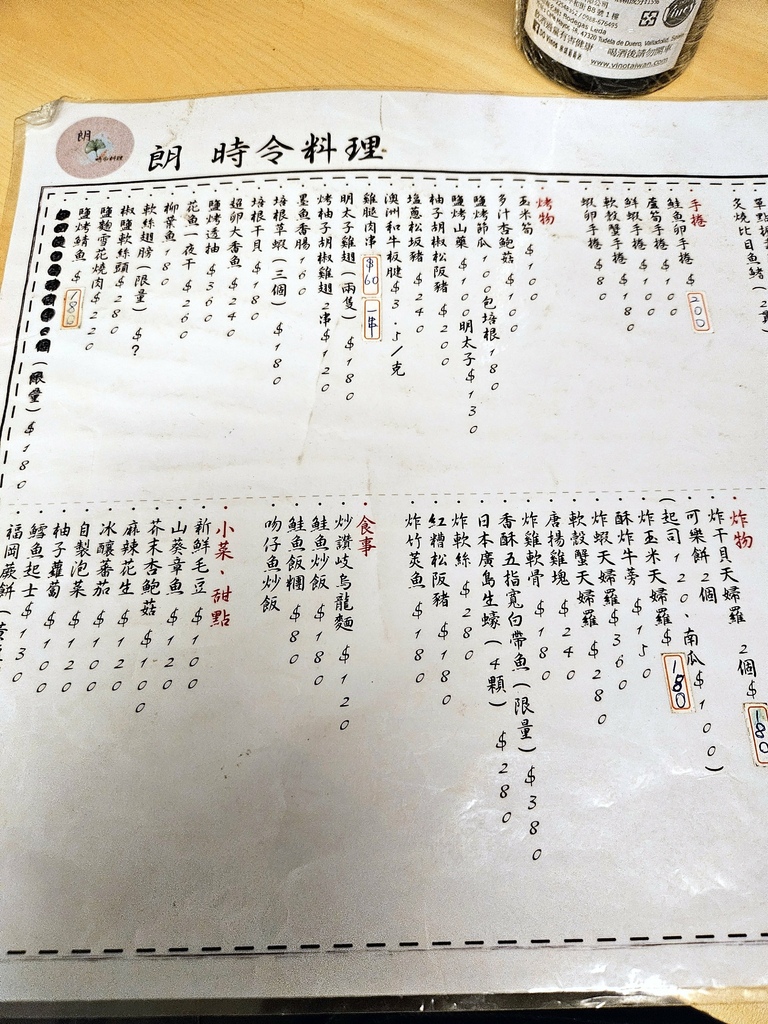 朗 時令料理
手捲
鮭魚卵手捲 $200
蘆筍手捲 $100
鮮蝦手捲 $100
軟殼蟹手捲 $180
蝦卵手捲 $80
烤物
玉米筍 $100
多汁杏鮑菇 $100
鹽烤節瓜100包培根180
鹽烤山藥 $100明太子$130
柚子胡椒松阪豬 $200
塩蔥松坂豬 $240
澳洲和牛板腱$3.5/克
雞腿肉串 $60 一串
明太子雞翅(兩隻) $180
烤柚子胡椒雞翅2串$120
墨魚香腸160
培根草蝦(三個) $180
培根干貝 $180
超卵大香魚 $240
鹽烤透抽 $360
花魚一夜干 $260
柳葉魚 $180
軟絲翅膀(限量) $?
椒鹽軟絲頭 $280
鹽麴雪花燒肉 $220
鹽烤鯖魚 180
(限量) $180
炸物
炸干貝天婦羅 2個$180
可樂餅2個
(起司120、南瓜$100)
炸玉米天婦羅$180
酥炸牛蒡 $150
炸蝦天婦羅$360
軟殼蟹天婦羅 $280
唐揚雞塊 $240
炸雞軟骨 $180
香酥五指寬白帶魚(限量) $380
日本廣島生蠔(4顆) $280
炸軟絲 $280
紅糟松阪豬 $180
炸竹筴魚 $180
食事
炒讚岐烏龍麵 $120
鮭魚炒飯 $180
鮭魚飯糰 $80
吻仔魚炒飯
小菜、甜點
新鮮毛豆 $100
山葵章魚 $120
芥末杏鮑菇 $100
麻辣花生 $100
冰釀蕃茄 $120
自製泡菜 $100
柚子蘿蔔 $120
鱈魚起士 $100
福岡蕨餅 $130
喝酒後請勿開車
www.vinotaiwan.com